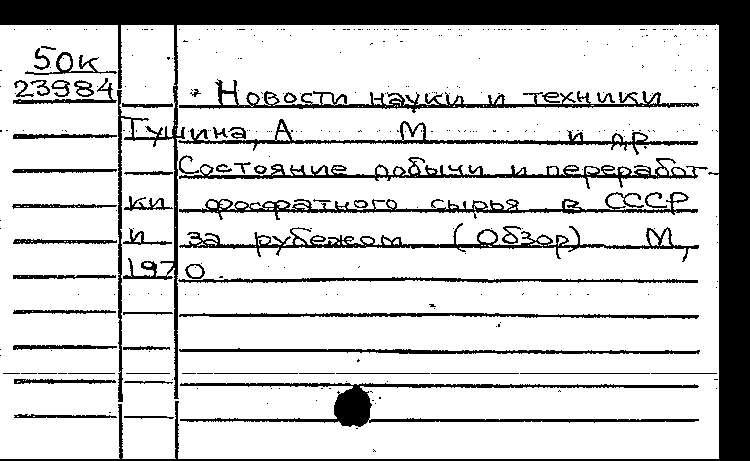 50к
23984
Новости науки и техники
Тушина, А М и др
Состояние добычи и переработ-
ки фосфатного сырья в СССР
и за рубежом (Обзор) М,
1970.